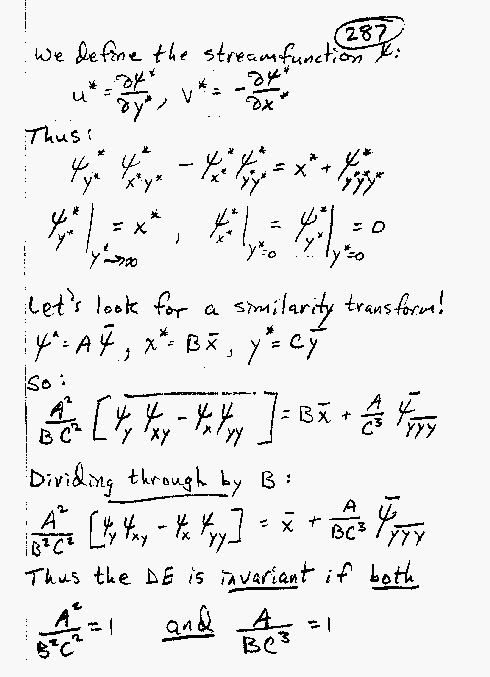 287
We define the streamfunction ψ:
u* = ∂ψ*/∂y*, v* = -∂ψ*/∂x*
Thus:
ψ*_y* ψ*_x*y* - ψ*_x* ψ*_y*y* = x* + ψ*_y*y*y*
ψ*_y*|_y*→∞ = x*, ψ*_x*|_y*=0 = ψ*_y*|_y*=0 = 0
Let's look for a similarity transform!
ψ* = Aψ̄, x* = Bx̄, y* = Cȳ
So:
A²/BC² [ψ_y ψ_xy - ψ_x ψ_yy] = Bx̄ + A/C³ ψ̄_yyy
Dividing through by B:
A²/B²C² [ψ_y ψ_xy - ψ_x ψ_yy] = x̄ + A/BC³ ψ̄_yyy
Thus the DE is invariant if both
A²/B²C² = 1 and A/BC³ = 1